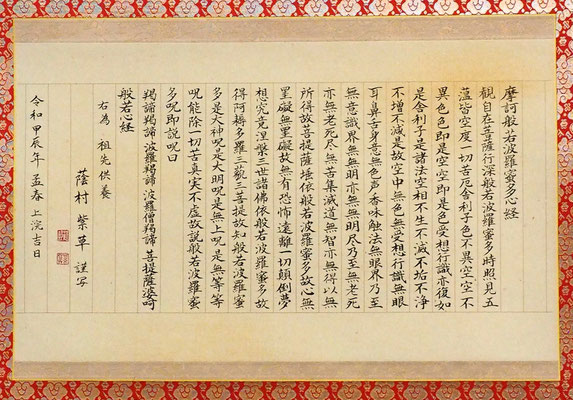 摩訶般若波羅蜜多心経
観自在菩薩行深般若波羅蜜多時照見五
蘊皆空度一切苦厄舎利子色不異空空不
異色色即是空空即是色受想行識亦復如
是舎利子是諸法空相不生不滅不垢不浄
不増不減是故空中無色無受想行識無眼
耳鼻舌身意無色声香味触法無眼界乃至
無意識界無無明亦無無明尽乃至無老死
亦無老死尽無苦集滅道無智亦無得以無
所得故菩提薩埵依般若波羅蜜多故心無
罣礙無罣礙故無有恐怖遠離一切顛倒夢
想究竟涅槃三世諸佛依般若波羅蜜多故
得阿耨多羅三藐三菩提故知般若波羅蜜
多是大神呪是大明呪是無上呪是無等等
呪能除一切苦真実不虚故説般若波羅蜜
多呪即説呪曰
羯諦羯諦 波羅羯諦 波羅僧羯諦 菩提薩婆訶
般若心経
右為 祖先供養
蔭村 紫草 謹写
令和甲辰年 孟春 上浣吉日